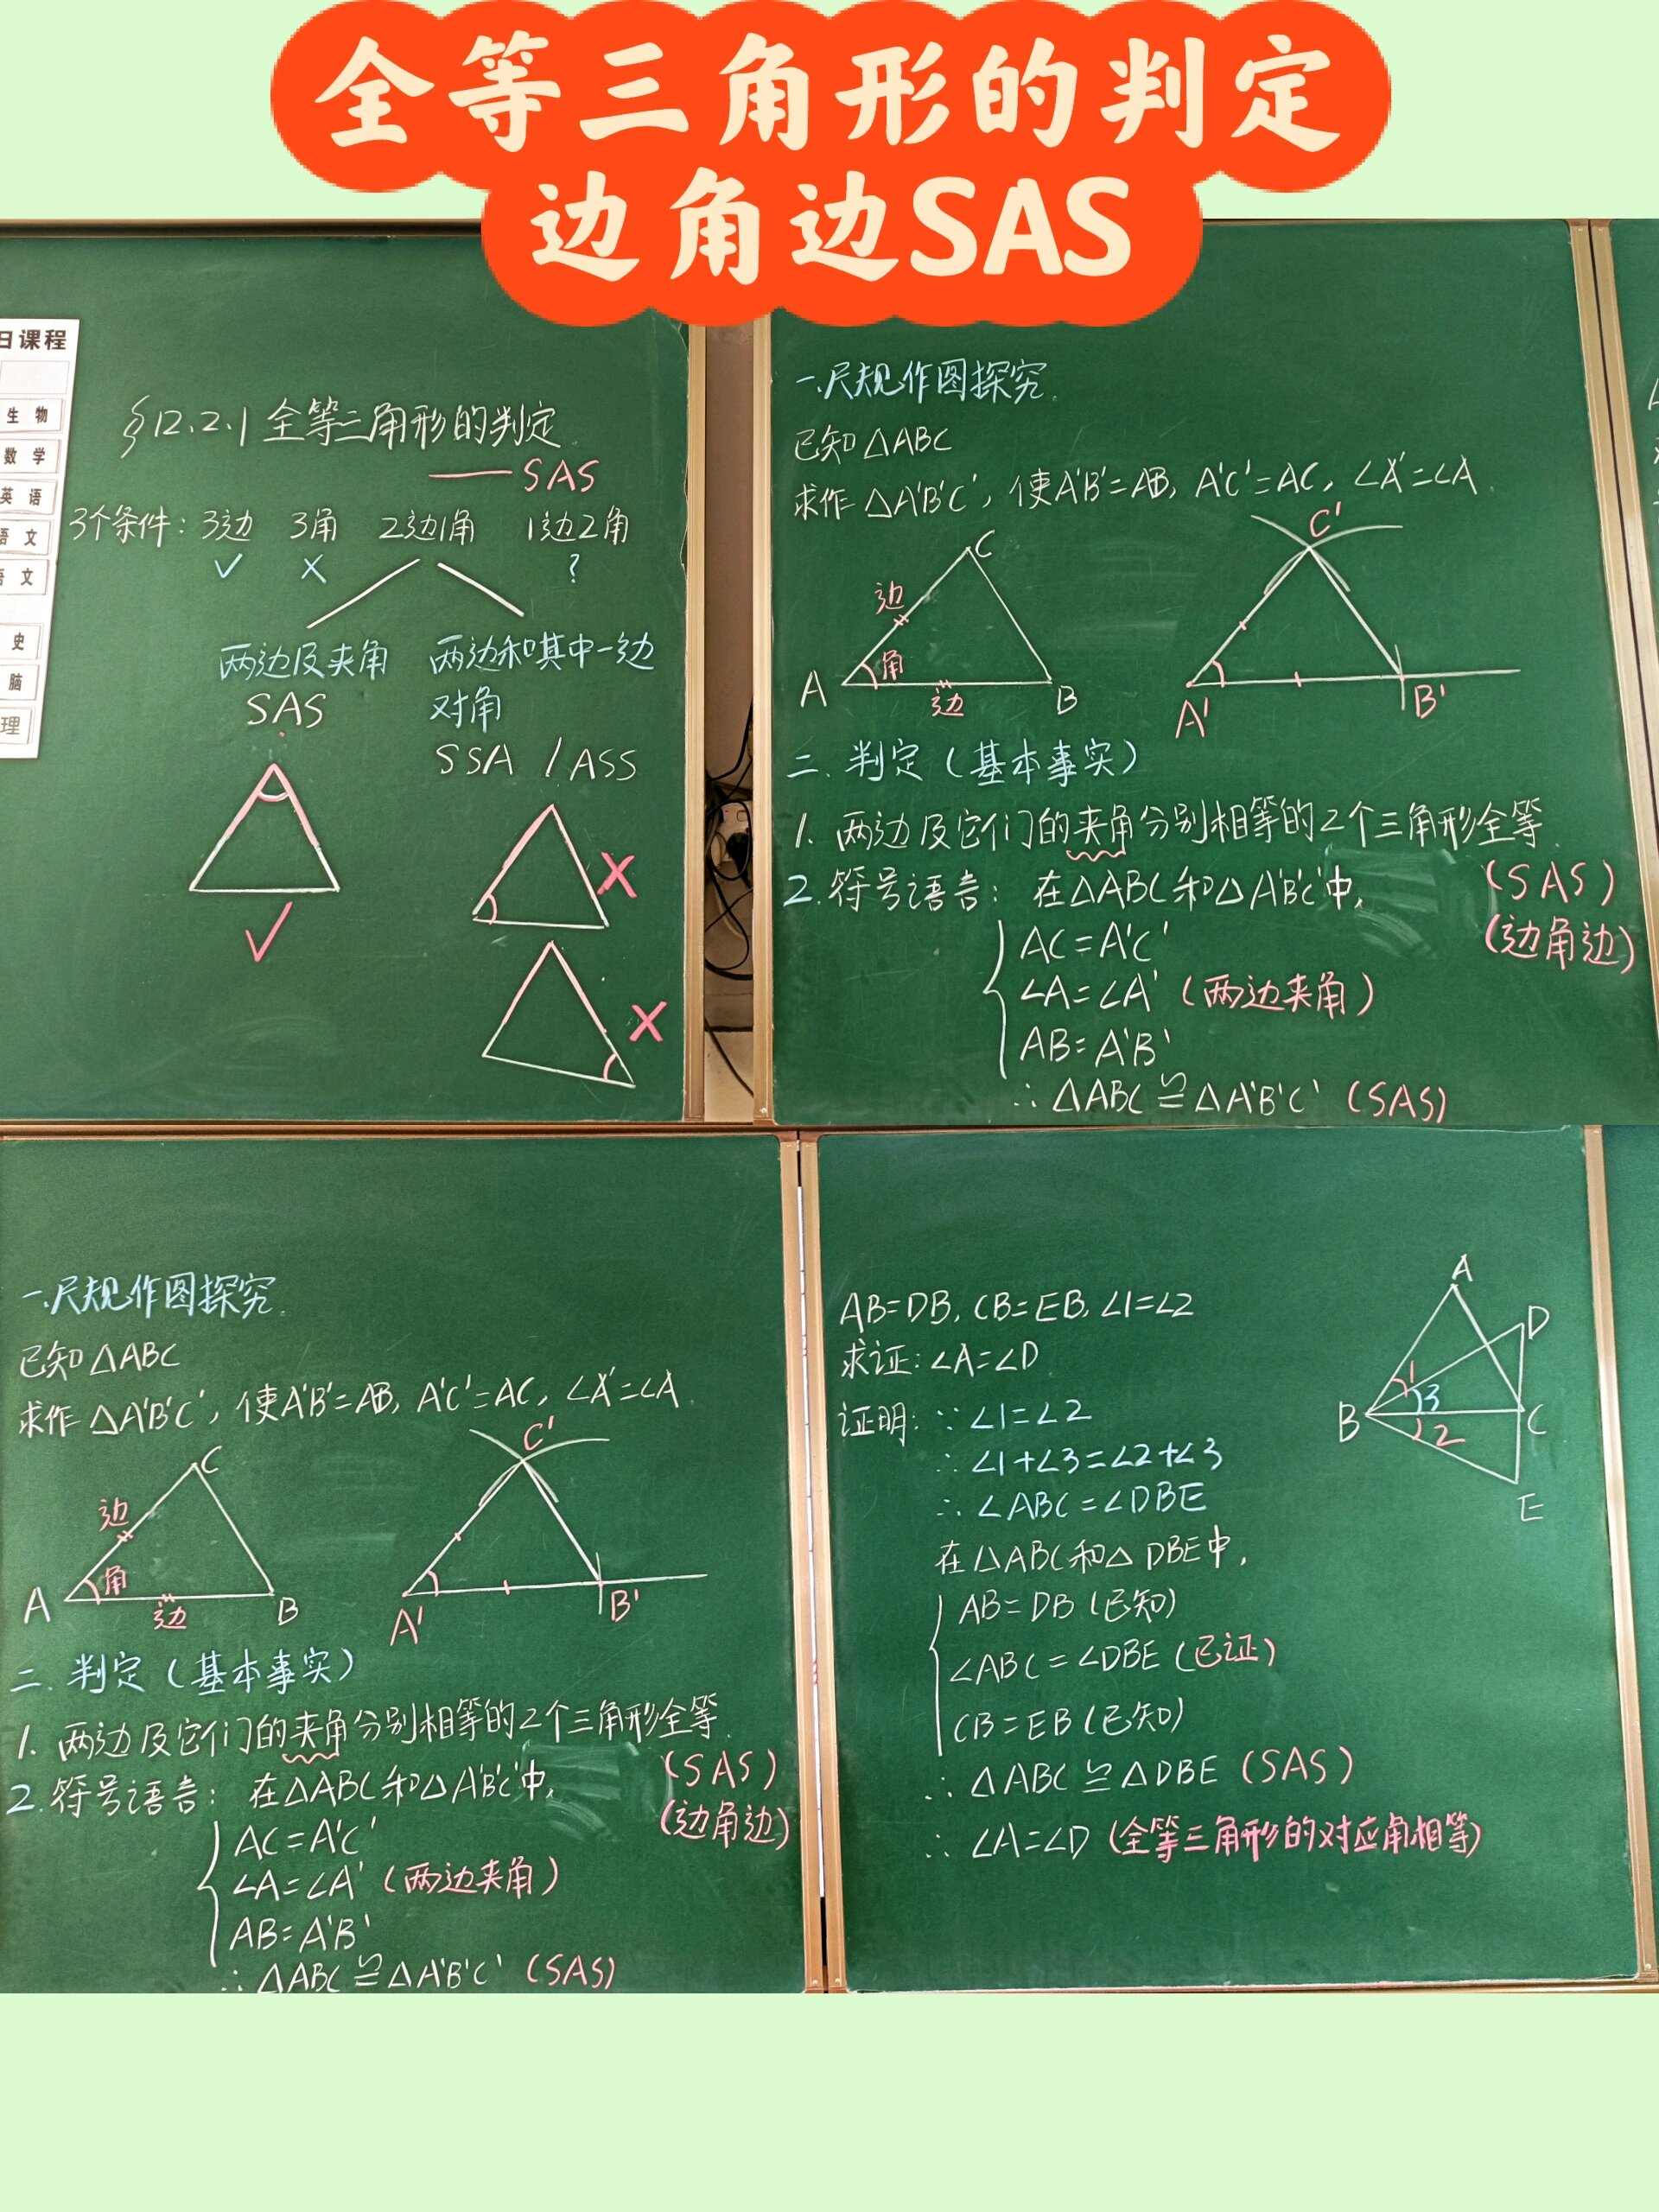 全等三角形的判定
边角边SAS
日课程
生物
数学
英语
语文
语文
史
脑
理
§12.2.1 全等三角形的判定
——SAS
3个条件：3边 3角 2边1角 1边2角
✓ × ?
两边及夹角
SAS
✓
两边和其中一边
对角
SSA / ASS
×
×
一.尺规作图探究.
已知△ABC
求作△A'B'C'，使A'B'=AB, A'C'=AC, ∠A'=∠A.
C
边
角
A
边
B
C'
A'
B'
二.判定（基本事实）
1. 两边及它们的夹角分别相等的2个三角形全等.
(SAS)
(边角边)
2.符号语言：在△ABC和△A'B'C'中,
AC=A'C'
∠A=∠A'（两边夹角）
AB=A'B'
∴△ABC≌△A'B'C'（SAS）
一.尺规作图探究.
已知△ABC
求作△A'B'C'，使A'B'=AB, A'C'=AC, ∠A'=∠A.
C
边
角
A
边
B
C'
A'
B'
二.判定（基本事实）
1. 两边及它们的夹角分别相等的2个三角形全等.
(SAS)
(边角边)
2.符号语言：在△ABC和△A'B'C'中,
AC=A'C'
∠A=∠A'（两边夹角）
AB=A'B'
∴△ABC≌△A'B'C'（SAS）
AB=DB, CB=EB, ∠1=∠2
求证：∠A=∠D
证明：∵∠1=∠2
∴∠1+∠3=∠2+∠3
∴∠ABC=∠DBE
在△ABC和△DBE中,
AB=DB（已知）
∠ABC=∠DBE（已证）
CB=EB（已知）
∴△ABC≌△DBE（SAS）
∴∠A=∠D（全等三角形的对应角相等）
A
D
1
3
B
C
2
E